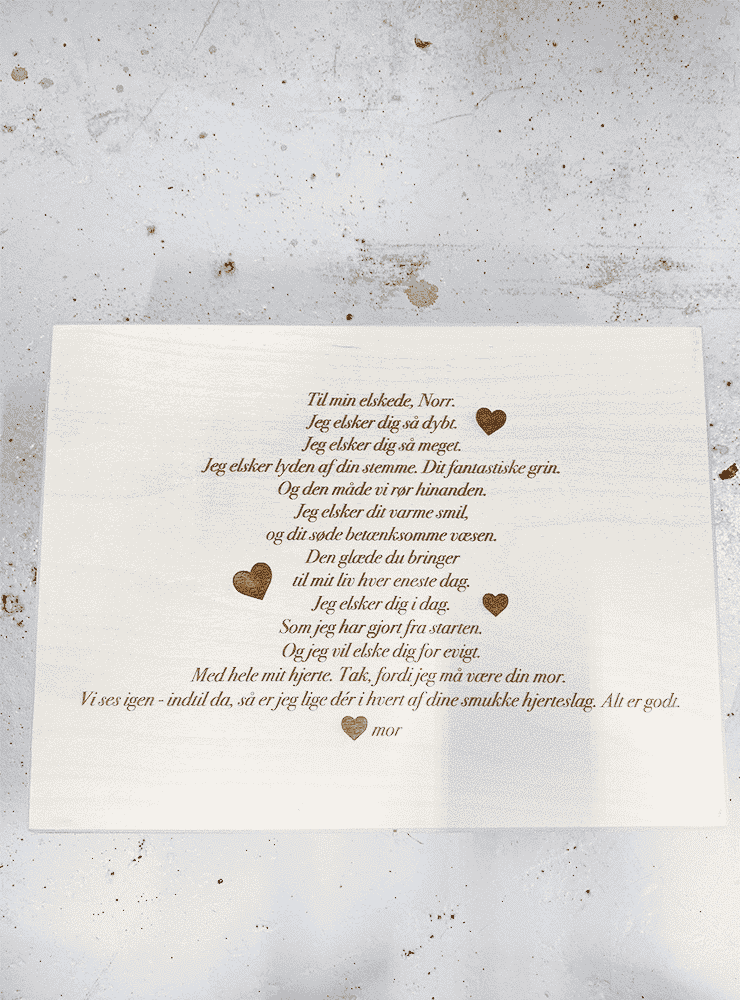 Til min elskede, Norr.
Jeg elsker dig så dybt.
Jeg elsker dig så meget.
Jeg elsker lyden af din stemme. Dit fantastiske grin.
Og den måde vi rør hinanden.
Jeg elsker dit varme smil,
og dit søde betænksomme væsen.
Den glæde du bringer
til mit liv hver eneste dag.
Jeg elsker dig i dag.
Som jeg har gjort fra starten.
Og jeg vil elske dig for evigt.
Med hele mit hjerte. Tak, fordi jeg må være din mor.
Vi ses igen - indtil da, så er jeg lige dér i hvert af dine smukke hjerteslag. Alt er godt.
mor